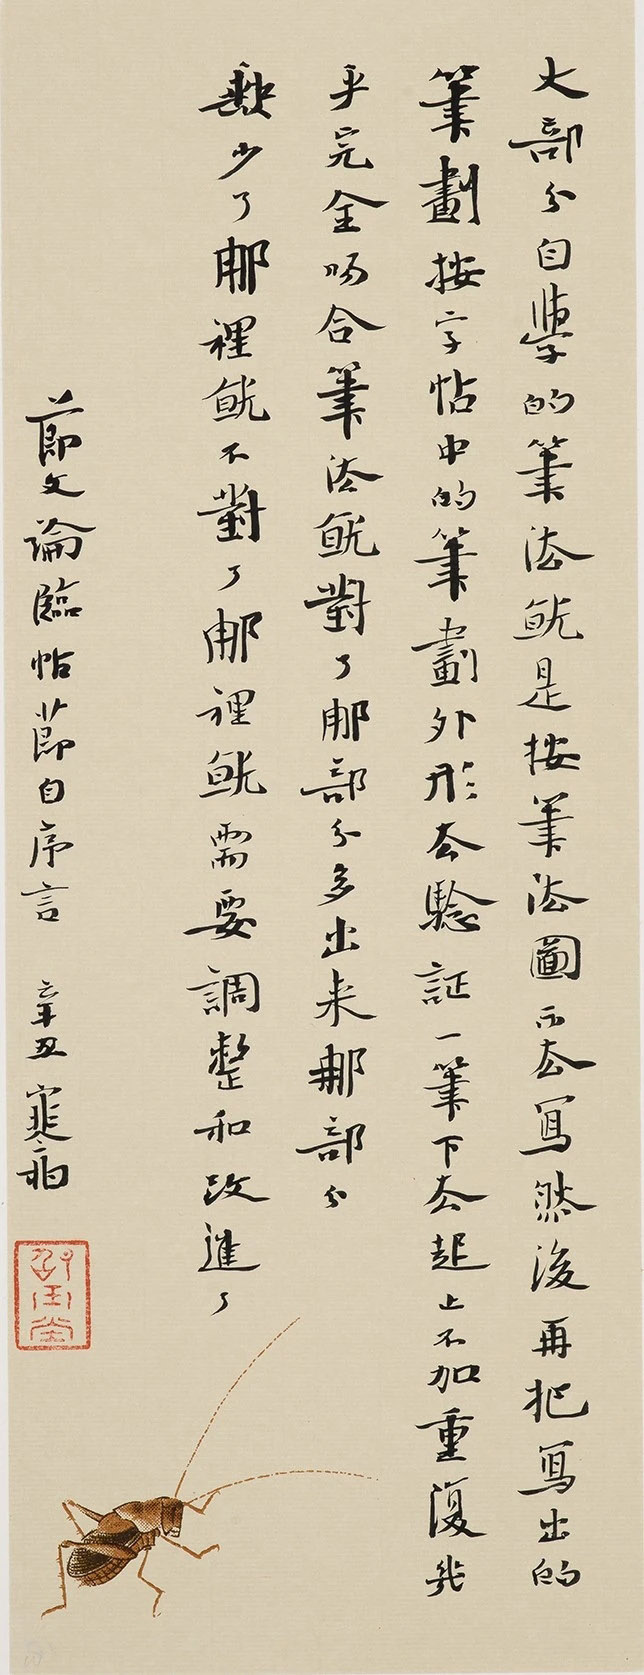 大部分自學的筆法就是按筆法圖示去寫然後再把寫出的
筆劃按字帖中的筆劃外形去驗証一筆下去起止不加重復幾
乎完全吻合筆法就對了那部分多出来那部分
缺少了那裡就不對了那裡就需要調整和改進了
節文論臨帖節自序言 辛丑